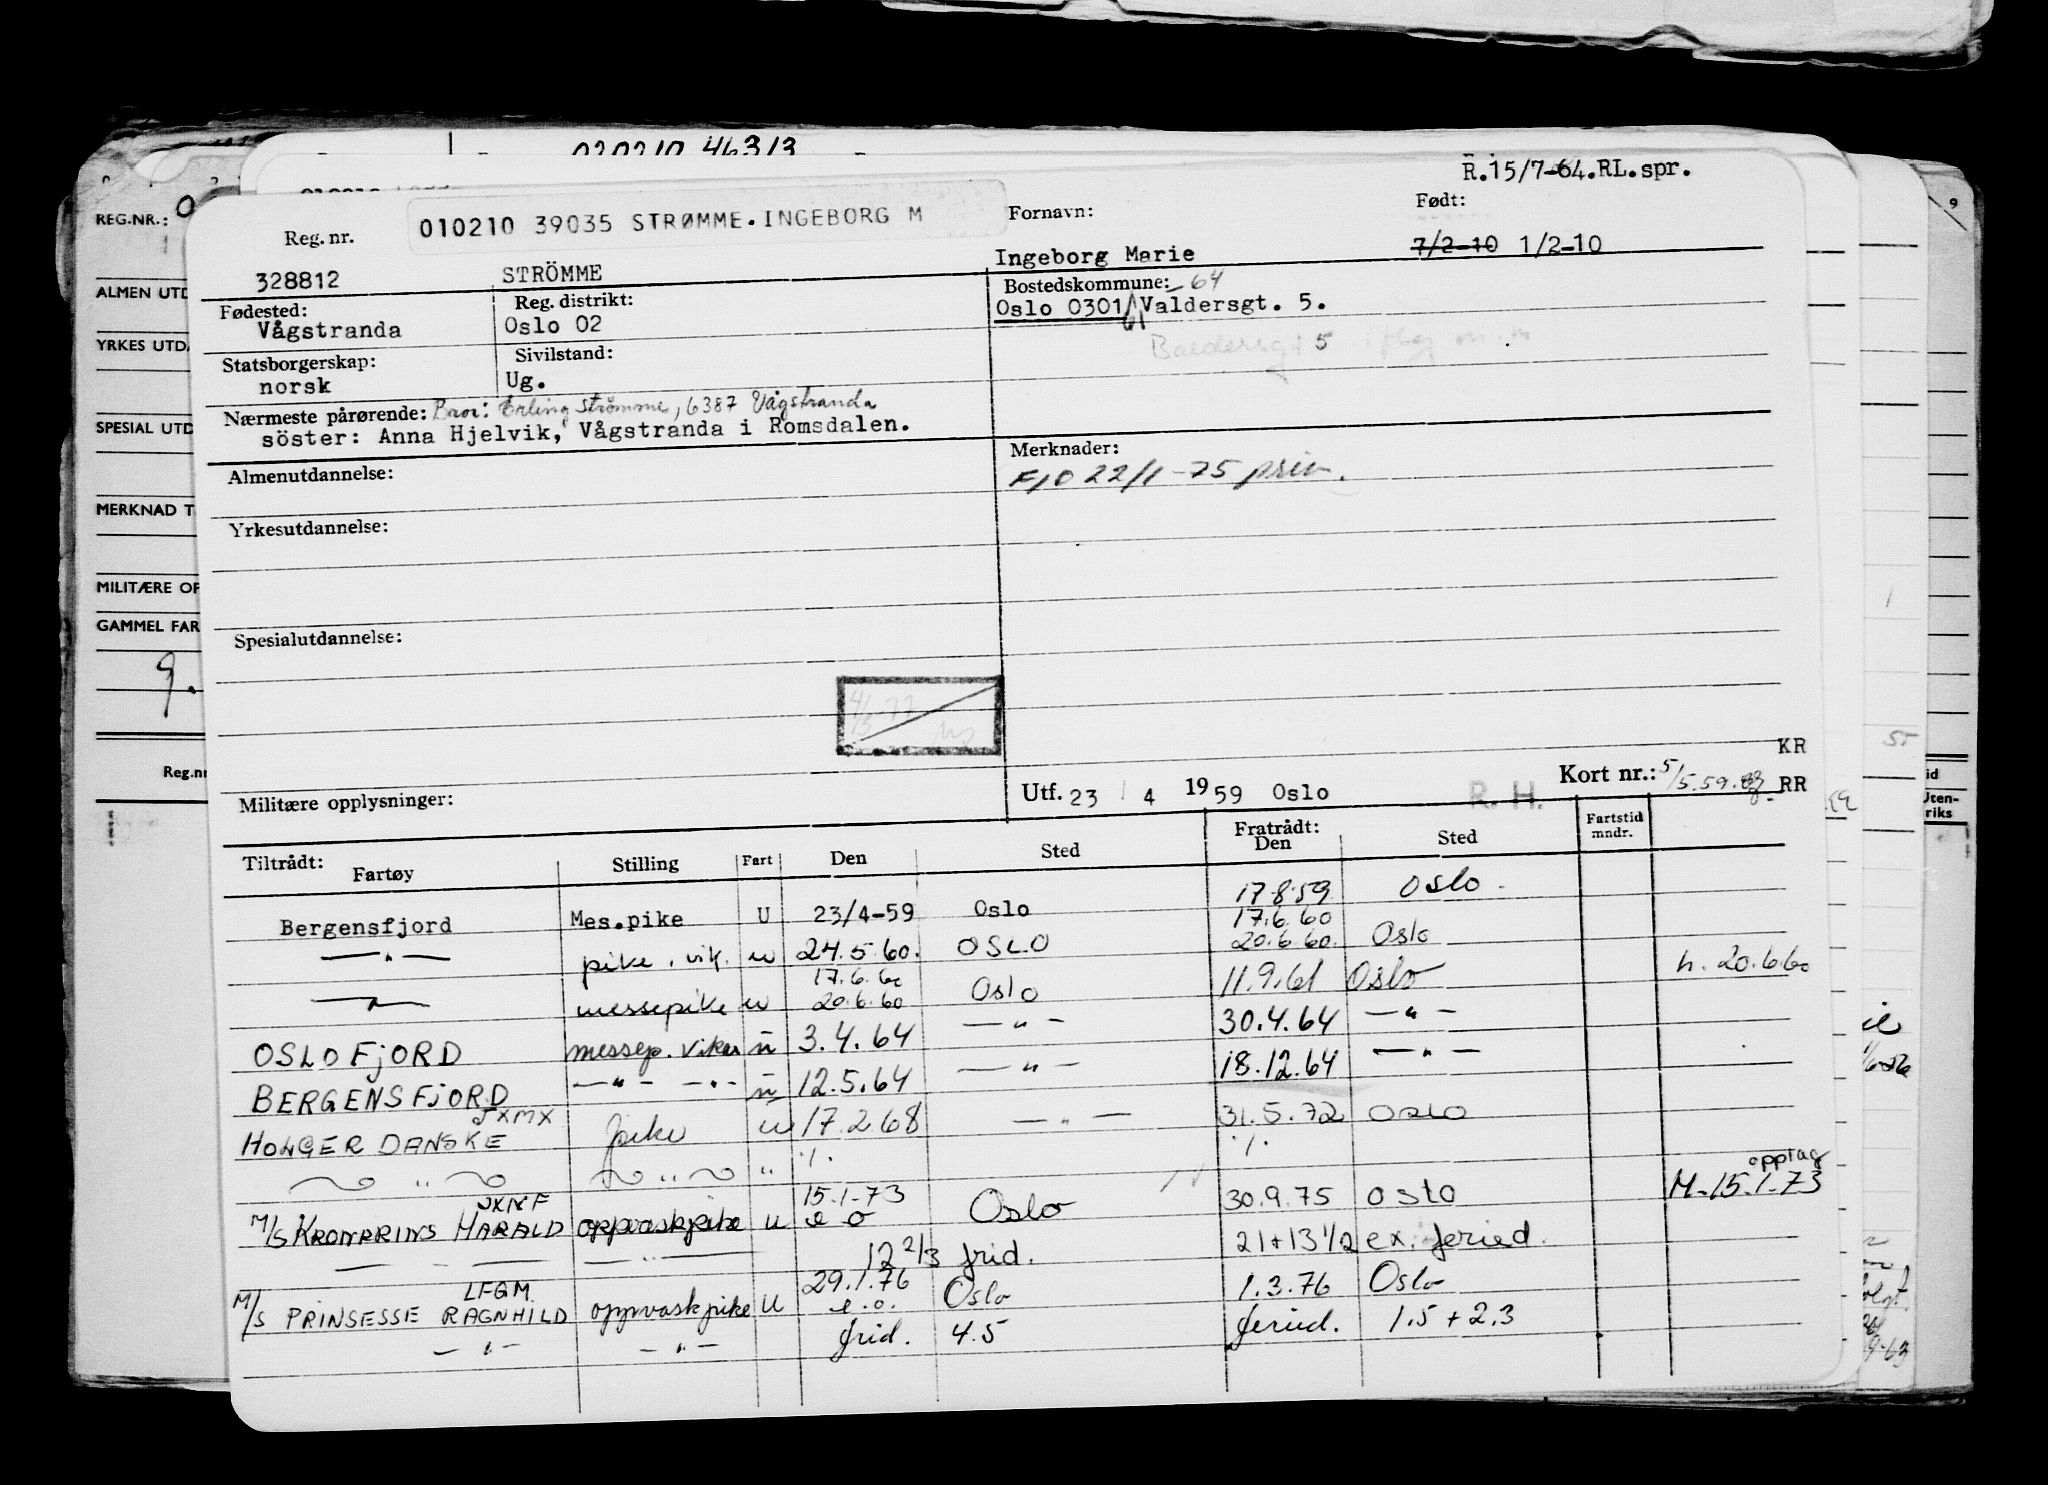 020210 46313
R.15/7-64.RL.spr.
REG.NR.:
Reg. nr. 010210 39035 STRØMME.INGEBORG M Fornavn: Født:
328812 STRÖMME Ingeborg Marie 7/2-10 1/2-10
Fødested: Reg. distrikt: Bostedskommune: -64
Vågstranda Oslo 02 Oslo 0301/Valdersgt. 5.
61
Statsborgerskap: Sivilstand: Baldersgt 5
norsk Ug.
Nærmeste pårørende: Bror: Erling Strømme, 6387 Vågstranda
söster: Anna Hjelvik, Vågstranda i Romsdalen.
Almenutdannelse: Merknader:
22/1-75
Yrkesutdannelse:
Spesialutdannelse:
4/3-77
KR
Militære opplysninger: Utf. 23 / 4 1959 Oslo R. H. Kort nr.: 5/5.59. RR
Tiltrådt: Fartøy Stilling Fart Den Sted Fratrådt: Den Sted Fartstid mndr.
Bergensfjord Mes.pike U 23/4-59 Oslo 17.8.59 Oslo.
—"— pike. vik. u 24.5.60. OSLO 17.6.60 20.6.60. Oslo
—"— messepike u 17.6.60 20.6.60 Oslo 11.9.61 Oslo h. 20.6.60
OSLOFJORD messep. vikar u 3.4.64 —"— 30.4.64 —"—
BERGENSFJORD —"— —"— u 12.5.64 —"— 18.12.64 —"—
JXMX
HOLGER DANSKE pike u 17.2.68 —"— 31.5.72 OSLO
" " " ./. ./.
JXNF 15.1.73 30.9.75 OSLO M-15.1-73 opptag
M/S KRONPRINS HARALD oppvaskpike u e o Oslo
— " — — " — 12 2/3 frid. 21+13 1/2 ex. feried.
LFGM 29.1.76 1.3.76 Oslo
M/S PRINSESSE RAGNHILD oppvaskpike U e.o. Oslo
—"— —"— frid. 4.5 feried. 1.5 + 2.3
ALMEN UTD
YRKES UTDA
SPESIAL UTD
MERKNAD T
MILITÆRE OP
GAMMEL FAR
Reg.nr
9
55
id
Uten-
riks
9-63